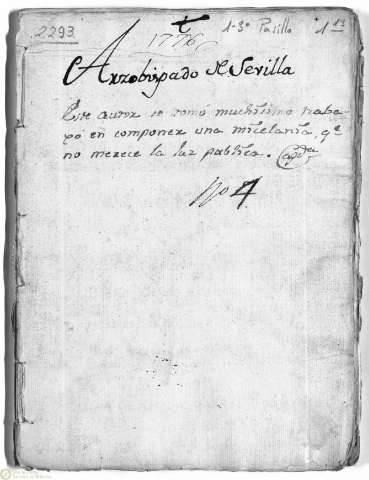 2293
1-3º Pasillo
1
13
1776
Arzobispado de Sevilla
Este autor se tomó muchissimo traba-
xo en componer una micelania, qe
no merece la luz publica.
Nº 4